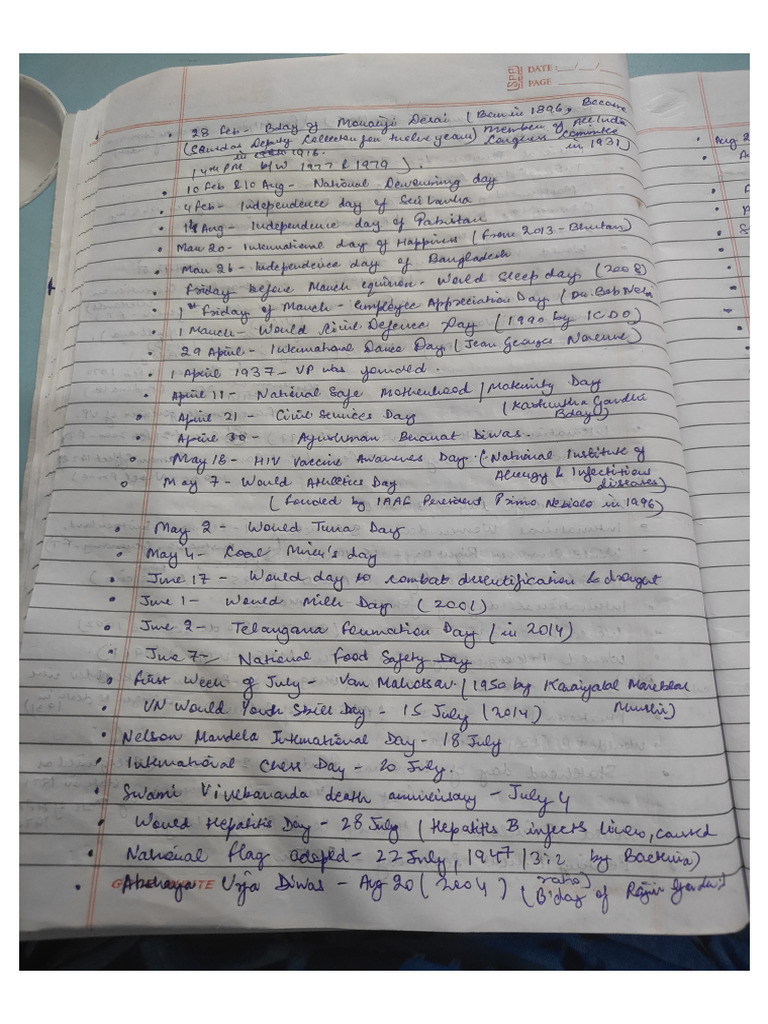 SPP
DATE: __/__/__
PAGE
• 28 Feb - Bday of Morarji Desai (Born in 1896, Became
(served Deputy Collector for twelve years) Member of All India
in 1918 Congress Committee
in 1931)
(4th PM b/w 1977 & 1979).
• 10 Feb & 10 Aug - National Deworming day
• 4 Feb - Independence day of Sri Lanka
• 14 Aug - Independence day of Pakistan
• Mar 20 - International day of Happiness (From 2013 - Bhutan)
• Mar 26 - Independence day of Bangladesh
• Friday before March equinox - World Sleep day (2008)
• 1st Friday of March - Employee Appreciation Day (Dr. Bob Nelson
• 1 March - World Civil Defence Day (1990 by ICDO)
• 29 April - International Dance Day (Jean Georges Noverre)
• 1 April 1937 - UP was founded.
• April 11 - National Safe Motherhood / Maternity Day
(Kasturba Gandhi
Bday)
• April 21 - Civil Services Day
• April 30 - Ayushman Bharat Diwas.
• May 18 - HIV Vaccine Awareness Day. (National Institute of
Allergy & Infectitious
diseases)
• May 7 - World Athletics Day
(founded by IAAF President, Primo Nebiolo in 1996)
• May 2 - World Tuna Day
• May 4 - Coal Miner's day
• June 17 - World day to combat desertification & drought
• June 1 - World Milk Day (2001)
• June 2 - Telangana Formation Day (in 2014)
• June 7 - National Food Safety Day
• First Week of July - Van Mahotsav (1950 by Kanaiyalal Maneklal
Munshi)
• UN World Youth Skill Day - 15 July (2014)
• Nelson Mandela International Day - 18 July
• International Chess Day - 20 July.
• Swami Vivekananda death anniversary - July 4
• World Hepatitis Day - 28 July (Hepatitis B infects liver, caused
by Bacteria)
• National flag adopted - 22 July, 1947 (3:2
ratio)
• Akshaya Urja Diwas - Aug 20 (2004) (B'day of Rajiv Gandhi)
• Aug 2